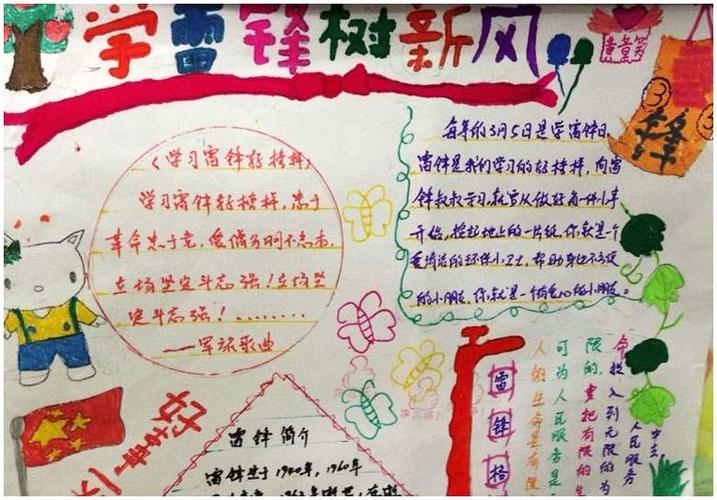 学雷锋树新风
《学习雷锋好榜样》
学习雷锋好榜样，忠于
革命忠于党，爱憎分明不忘本，
立场坚定斗志强！立场坚
定斗志强！........
——军旅歌曲
每年的3月5日是学雷锋日，
雷锋是我们学习的好榜样，向雷
锋叔叔学习，就当从做好每一件小事
开始，捡起地上的一片纸，你就是个
爱清洁的环保小卫士，帮助身边不方便
的小朋友，你就是一个有爱心的小朋友。
雷锋
好事
雷锋简介
雷锋生于1940年，1960年
雷锋格
人的生命是有限
可为人民服务是
限的，我把有限的生
命投入到无限的为
人民服务
中去